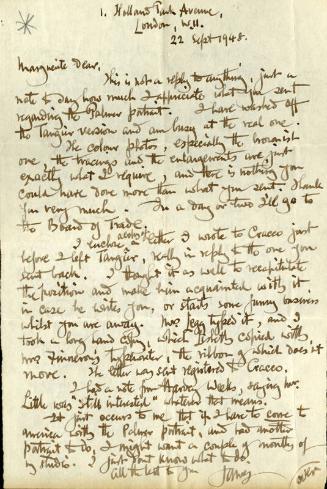 1. Holland Park Avenue,
London, W.11.
22 Sept 1948.
Marguerite Dear,
This is not a reply to anything, just a
note to say how much I appreciate what you sent
regarding the Palmer portrait. I have washed off
the Tangier version and am busy at the real one.
The colour photos, especially the
one, the tracings and the enlargements are just
exactly what I require, and there is nothing you
could have done more than what you sent. Thank
you very much. In a day or two I'll go to
the Board of Trade.
I enclose a copy of letter I wrote to Cracco just
before I left Tangier, really in reply to the one you
sent back. I thought it as well to recapitulate
the position and make him acquainted with it
in case he writes you, or starts some funny business
whilst you are away. Mrs typed it, and I
took a long hand copy, which I copied with
Mrs typewriter, the ribbon of which does'nt
move. The letter was sent registered to Cracco.
I had a note from Harvey Weeks, saying Mrs.
Little was "still interested" whatever that means.
It just occurs to me that if I have to come to
America with the Palmer portrait, and had another
portrait to do, I might want a couple of months of
my studio. I just dont know what to do.
All the best to you
James
over